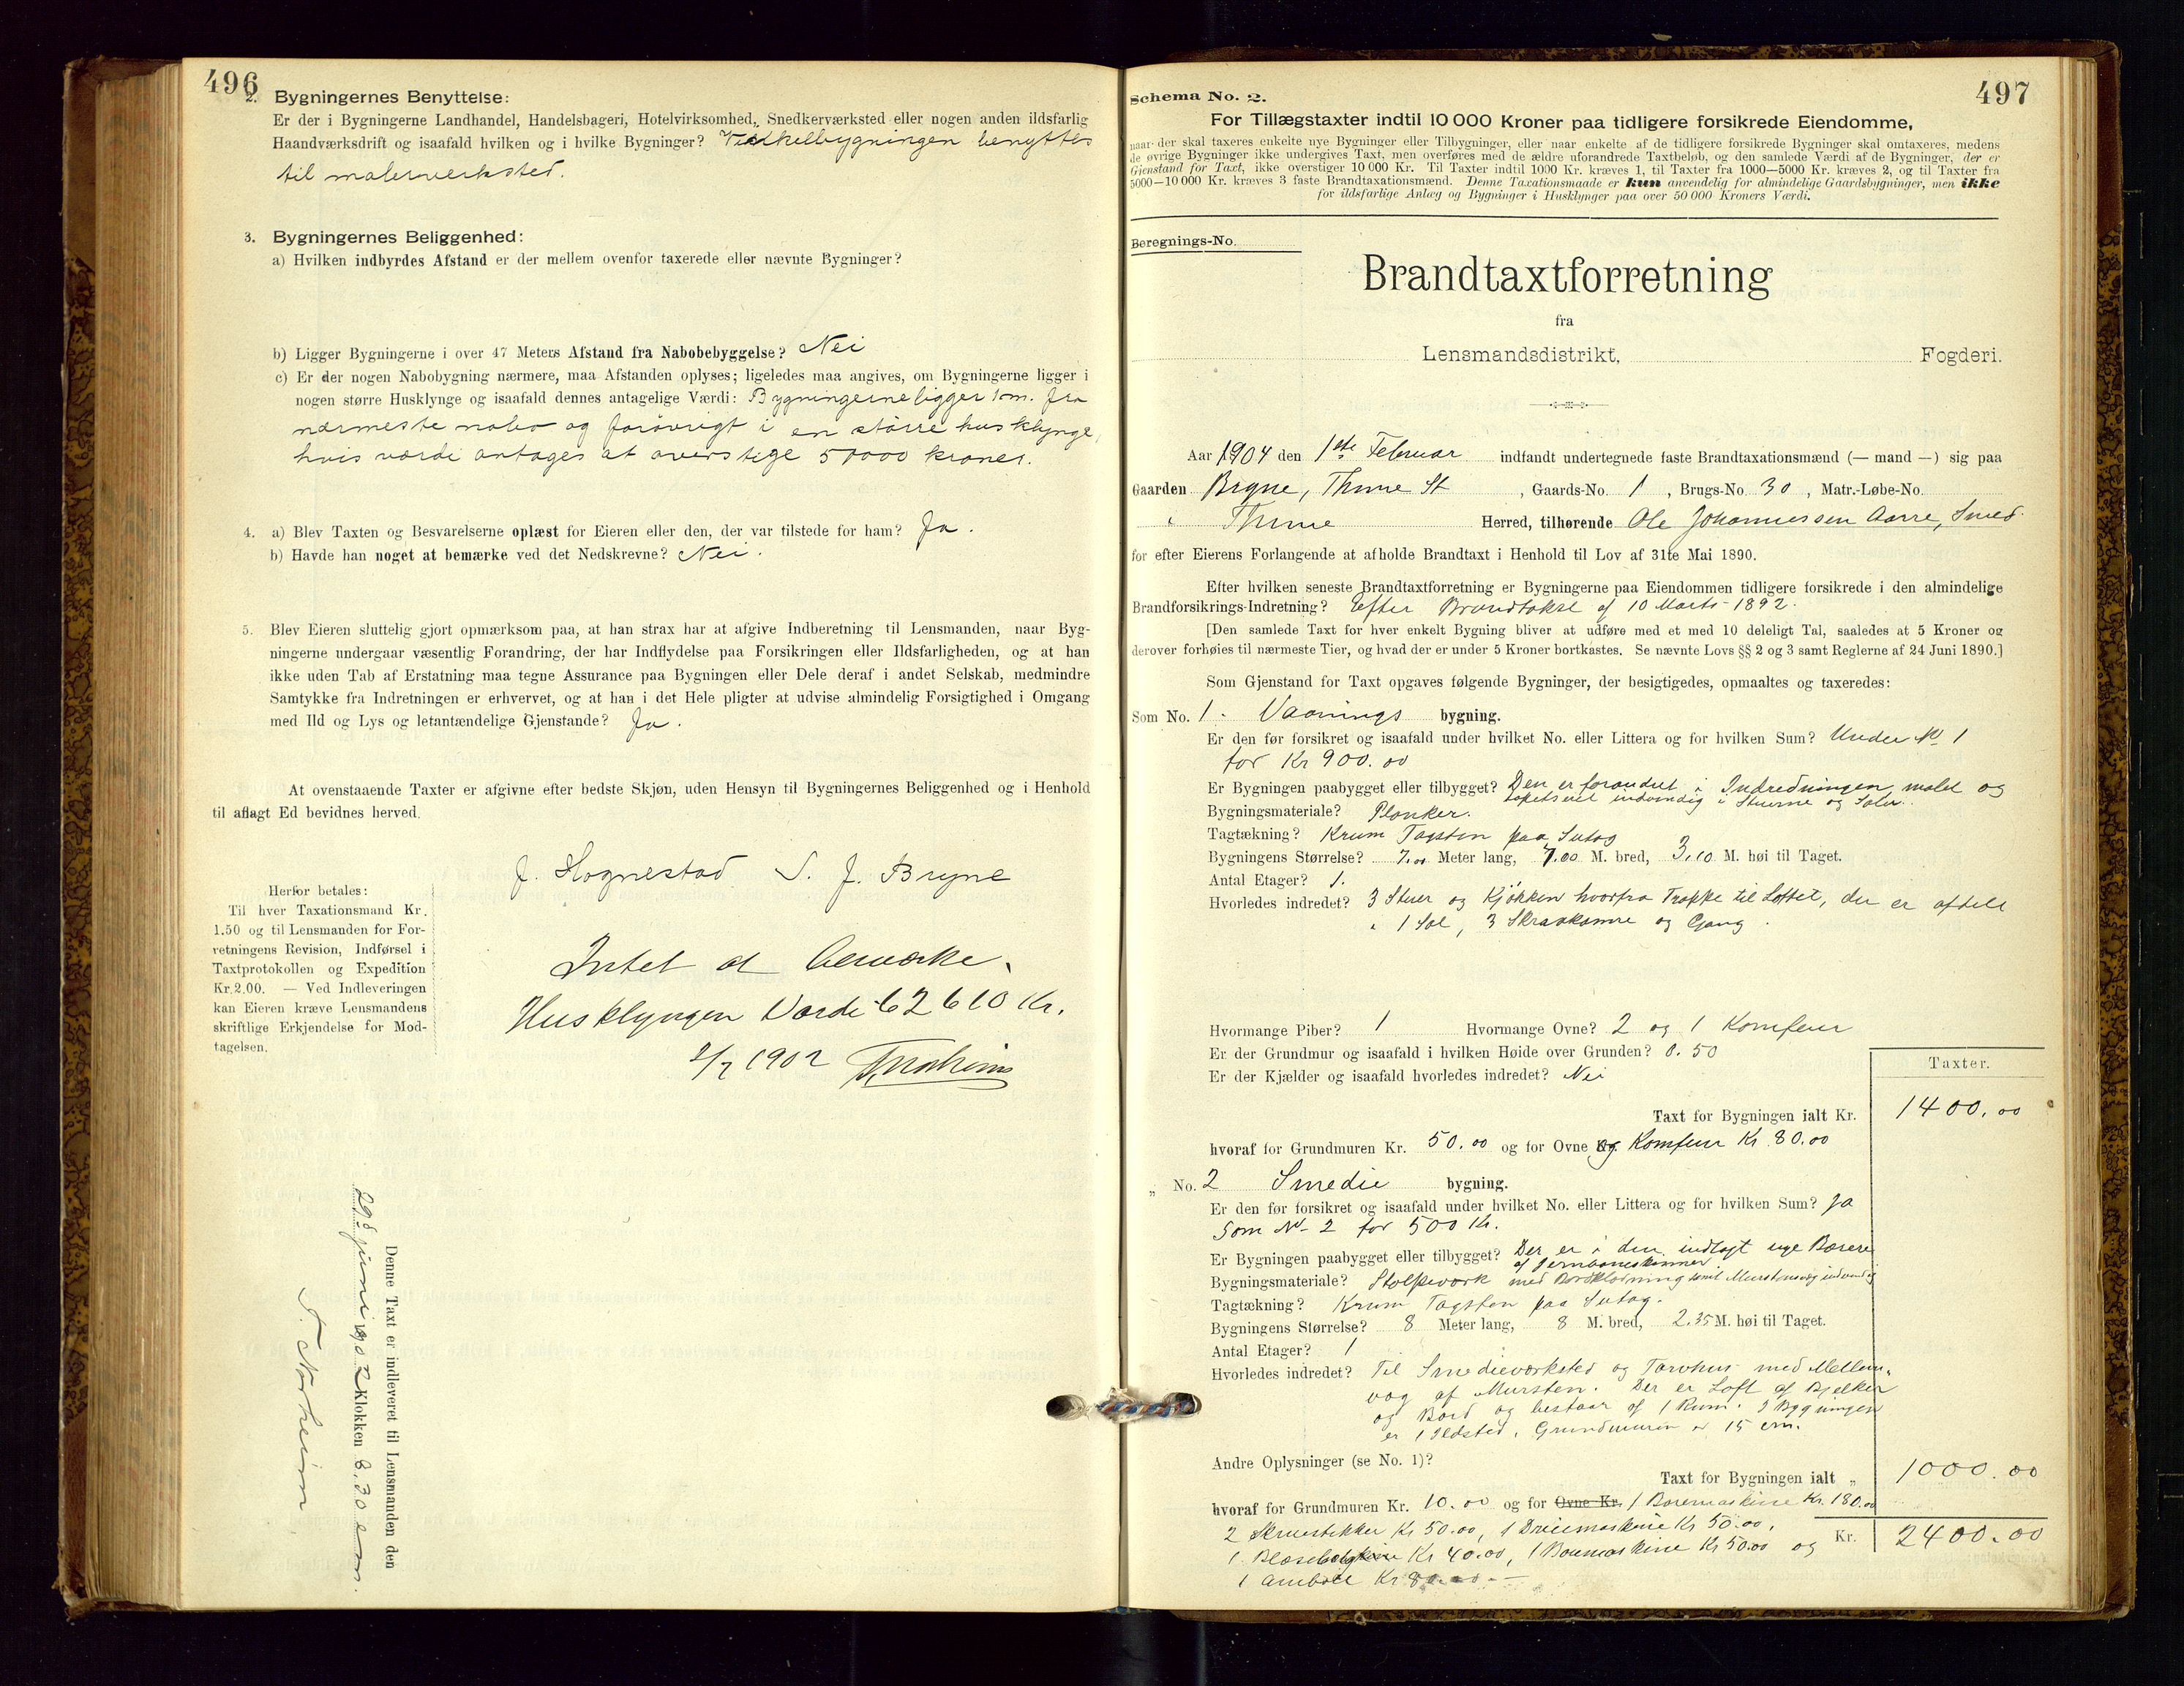 496
2. Bygningernes Benyttelse:
Er der i Bygningerne Landhandel, Handelsbageri, Hotelvirksomhed, Snedkerværksted eller nogen anden ildsfarlig
Haandværksdrift og isaafald hvilken og i hvilke Bygninger? Vinkelbygningen benyttes
til malerverksted.
3. Bygningernes Beliggenhed:
a) Hvilken indbyrdes Afstand er der mellem ovenfor taxerede eller nævnte Bygninger?
b) Ligger Bygningerne i over 47 Meters Afstand fra Nabobebyggelse? Nei
c) Er der nogen Nabobygning nærmere, maa Afstanden oplyses; ligeledes maa angives, om Bygningerne ligger i
nogen større Husklynge og isaafald dennes antagelige Værdi: Bygningerne ligger 1 m. fra
nærmeste nabo og forøvrigt i en større husklynge,
hvis værdi antages at overstige 50000 kroner.
4. a) Blev Taxten og Besvarelserne oplæst for Eieren eller den, der var tilstede for ham? Ja.
b) Havde han noget at bemærke ved det Nedskrevne? Nei.
5. Blev Eieren sluttelig gjort opmærksom paa, at han strax har at afgive Indberetning til Lensmanden, naar Byg-
ningerne undergaar væsentlig Forandring, der har Indflydelse paa Forsikringen eller Ildsfarligheden, og at han
ikke uden Tab af Erstatning maa tegne Assurance paa Bygningen eller Dele deraf i andet Selskab, medmindre
Samtykke fra Indretningen er erhvervet, og at han i det Hele pligter at udvise almindelig Forsigtighed i Omgang
med Ild og Lys og letantændelige Gjenstande? Ja.
At ovenstaaende Taxter er afgivne efter bedste Skjøn, uden Hensyn til Bygningernes Beliggenhed og i Henhold
til aflagt Ed bevidnes herved.
J. Hognestad S. J. Bryne
Herfor betales:
Til hver Taxationsmand Kr.
1.50 og til Lensmanden for For-
retningens Revision, Indførsel i
Taxtprotokollen og Expedition
Kr. 2.00. — Ved Indleveringen
kan Eieren kræve Lensmandens
skriftlige Erkjendelse for Mod-
tagelsen.
Intet at bemærke.
Husklyngen Værdi 62610 Kr.
2/7 1902
Denne Taxt er indleveret til Lensmanden den
29 juni 1902 Klokken 8.30 em.
T. Norheim
497
Schema No. 2.
For Tillægstaxter indtil 10 000 Kroner paa tidligere forsikrede Eiendomme,
naar der skal taxeres enkelte nye Bygninger eller Tilbygninger, eller naar enkelte af de tidligere forsikrede Bygninger skal omtaxeres, medens
de øvrige Bygninger ikke undergives Taxt, men overføres med de ældre uforandrede Taxtbeløb, og den samlede Værdi af de Bygninger, der er
Gjenstand for Taxt, ikke overstiger 10 000 Kr. Til Taxter indtil 1000 Kr. kræves 1, til Taxter fra 1000—5000 Kr. kræves 2, og til Taxter fra
5000—10 000 Kr. kræves 3 faste Brandtaxationsmænd. Denne Taxationsmaade er kun anvendelig for almindelige Gaardsbygninger, men ikke
for ildsfarlige Anlæg og Bygninger i Husklynger paa over 50 000 Kroners Værdi.
Beregnings-No.
Brandtaxtforretning
fra
Lensmandsdistrikt, Fogderi.
Aar 1904 den 1ste Februar indfandt undertegnede faste Brandtaxationsmænd (— mand —) sig paa
Gaarden Bryne, Thime St , Gaards-No. 1 , Brugs-No. 30 , Matr.-Løbe-No.
i Thime Herred, tilhørende Ole Johannessen Aarre, Smed
for efter Eierens Forlangende at afholde Brandtaxt i Henhold til Lov af 31te Mai 1890.
Efter hvilken seneste Brandtaxtforretning er Bygningerne paa Eiendommen tidligere forsikrede i den almindelige
Brandforsikrings-Indretning? Efter Brandtakst af 10 Marts 1892.
[Den samlede Taxt for hver enkelt Bygning bliver at udføre med et med 10 deleligt Tal, saaledes at 5 Kroner og
derover forhøies til nærmeste Tier, og hvad der er under 5 Kroner bortkastes. Se nævnte Lovs §§ 2 og 3 samt Reglerne af 24 Juni 1890.]
Som Gjenstand for Taxt opgaves følgende Bygninger, der besigtigedes, opmaaltes og taxeredes:
Som No. 1. Vaanings bygning.
Er den før forsikret og isaafald under hvilket No. eller Littera og for hvilken Sum? Under No 1
for Kr 900.00
Er Bygningen paabygget eller tilbygget? Den er forandret i Indredningen, malet og
tapetseret indvendig i Stuerne og Salen.
Bygningsmateriale? Planker.
Tagtækning? Krum Tagsten paa Sutag
Bygningens Størrelse? 7.00 Meter lang, 7.00 M. bred, 3,10 M. høi til Taget.
Antal Etager? 1.
Hvorledes indredet? 3 Stuer og Kjøkken hvorfra Trappe til Loftet, der er afdelt
i 1 Sal, 3 Skraakamre og Gang.
Hvormange Piber? 1 Hvormange Ovne? 2 og 1 Komfeur
Er der Grundmur og isaafald i hvilken Høide over Grunden? 0.50
Er der Kjælder og isaafald hvorledes indredet? Nei
Taxter.
Taxt for Bygningen ialt Kr. 1400.00
hvoraf for Grundmuren Kr. 50.00 og for Ovne og Komfeur Kr. 80.00
„ No. 2 Smedie bygning.
Er den før forsikret og isaafald under hvilket No. eller Littera og for hvilken Sum? Ja
Som No 2 for 500 Kr.
Er Bygningen paabygget eller tilbygget? Der er i den indlagt nye Bærere
af Jernbaneskinner.
Bygningsmateriale? Stolpeværk med Bordklædning samt Murstensvæg indvendig
Tagtækning? Krum Tagsten paa Sutag.
Bygningens Størrelse? 8 Meter lang, 8 M. bred, 2.35 M. høi til Taget.
Antal Etager? 1
Hvorledes indredet? Til Smedieværksted og Torvhus med Mellem-
væg af Mursten. Der er Loft af Bjelker
og Bord og bestaar af 1 Rum. I Bygningen
er 1 Ildsted. Grundmuren er 15 cm.
Andre Oplysninger (se No. 1)?
Taxt for Bygningen ialt „ 1000.00
hvoraf for Grundmuren Kr. 10.00 og for Ovne Kr. 1 Boremaskine Kr. 180.00
2 Skruestikker Kr 50.00, 1 Dreiemaskine Kr 50.00,
1 Kr 40.00, 1 Kr 50.00 og Kr. 2400.00
1 Ambolt Kr